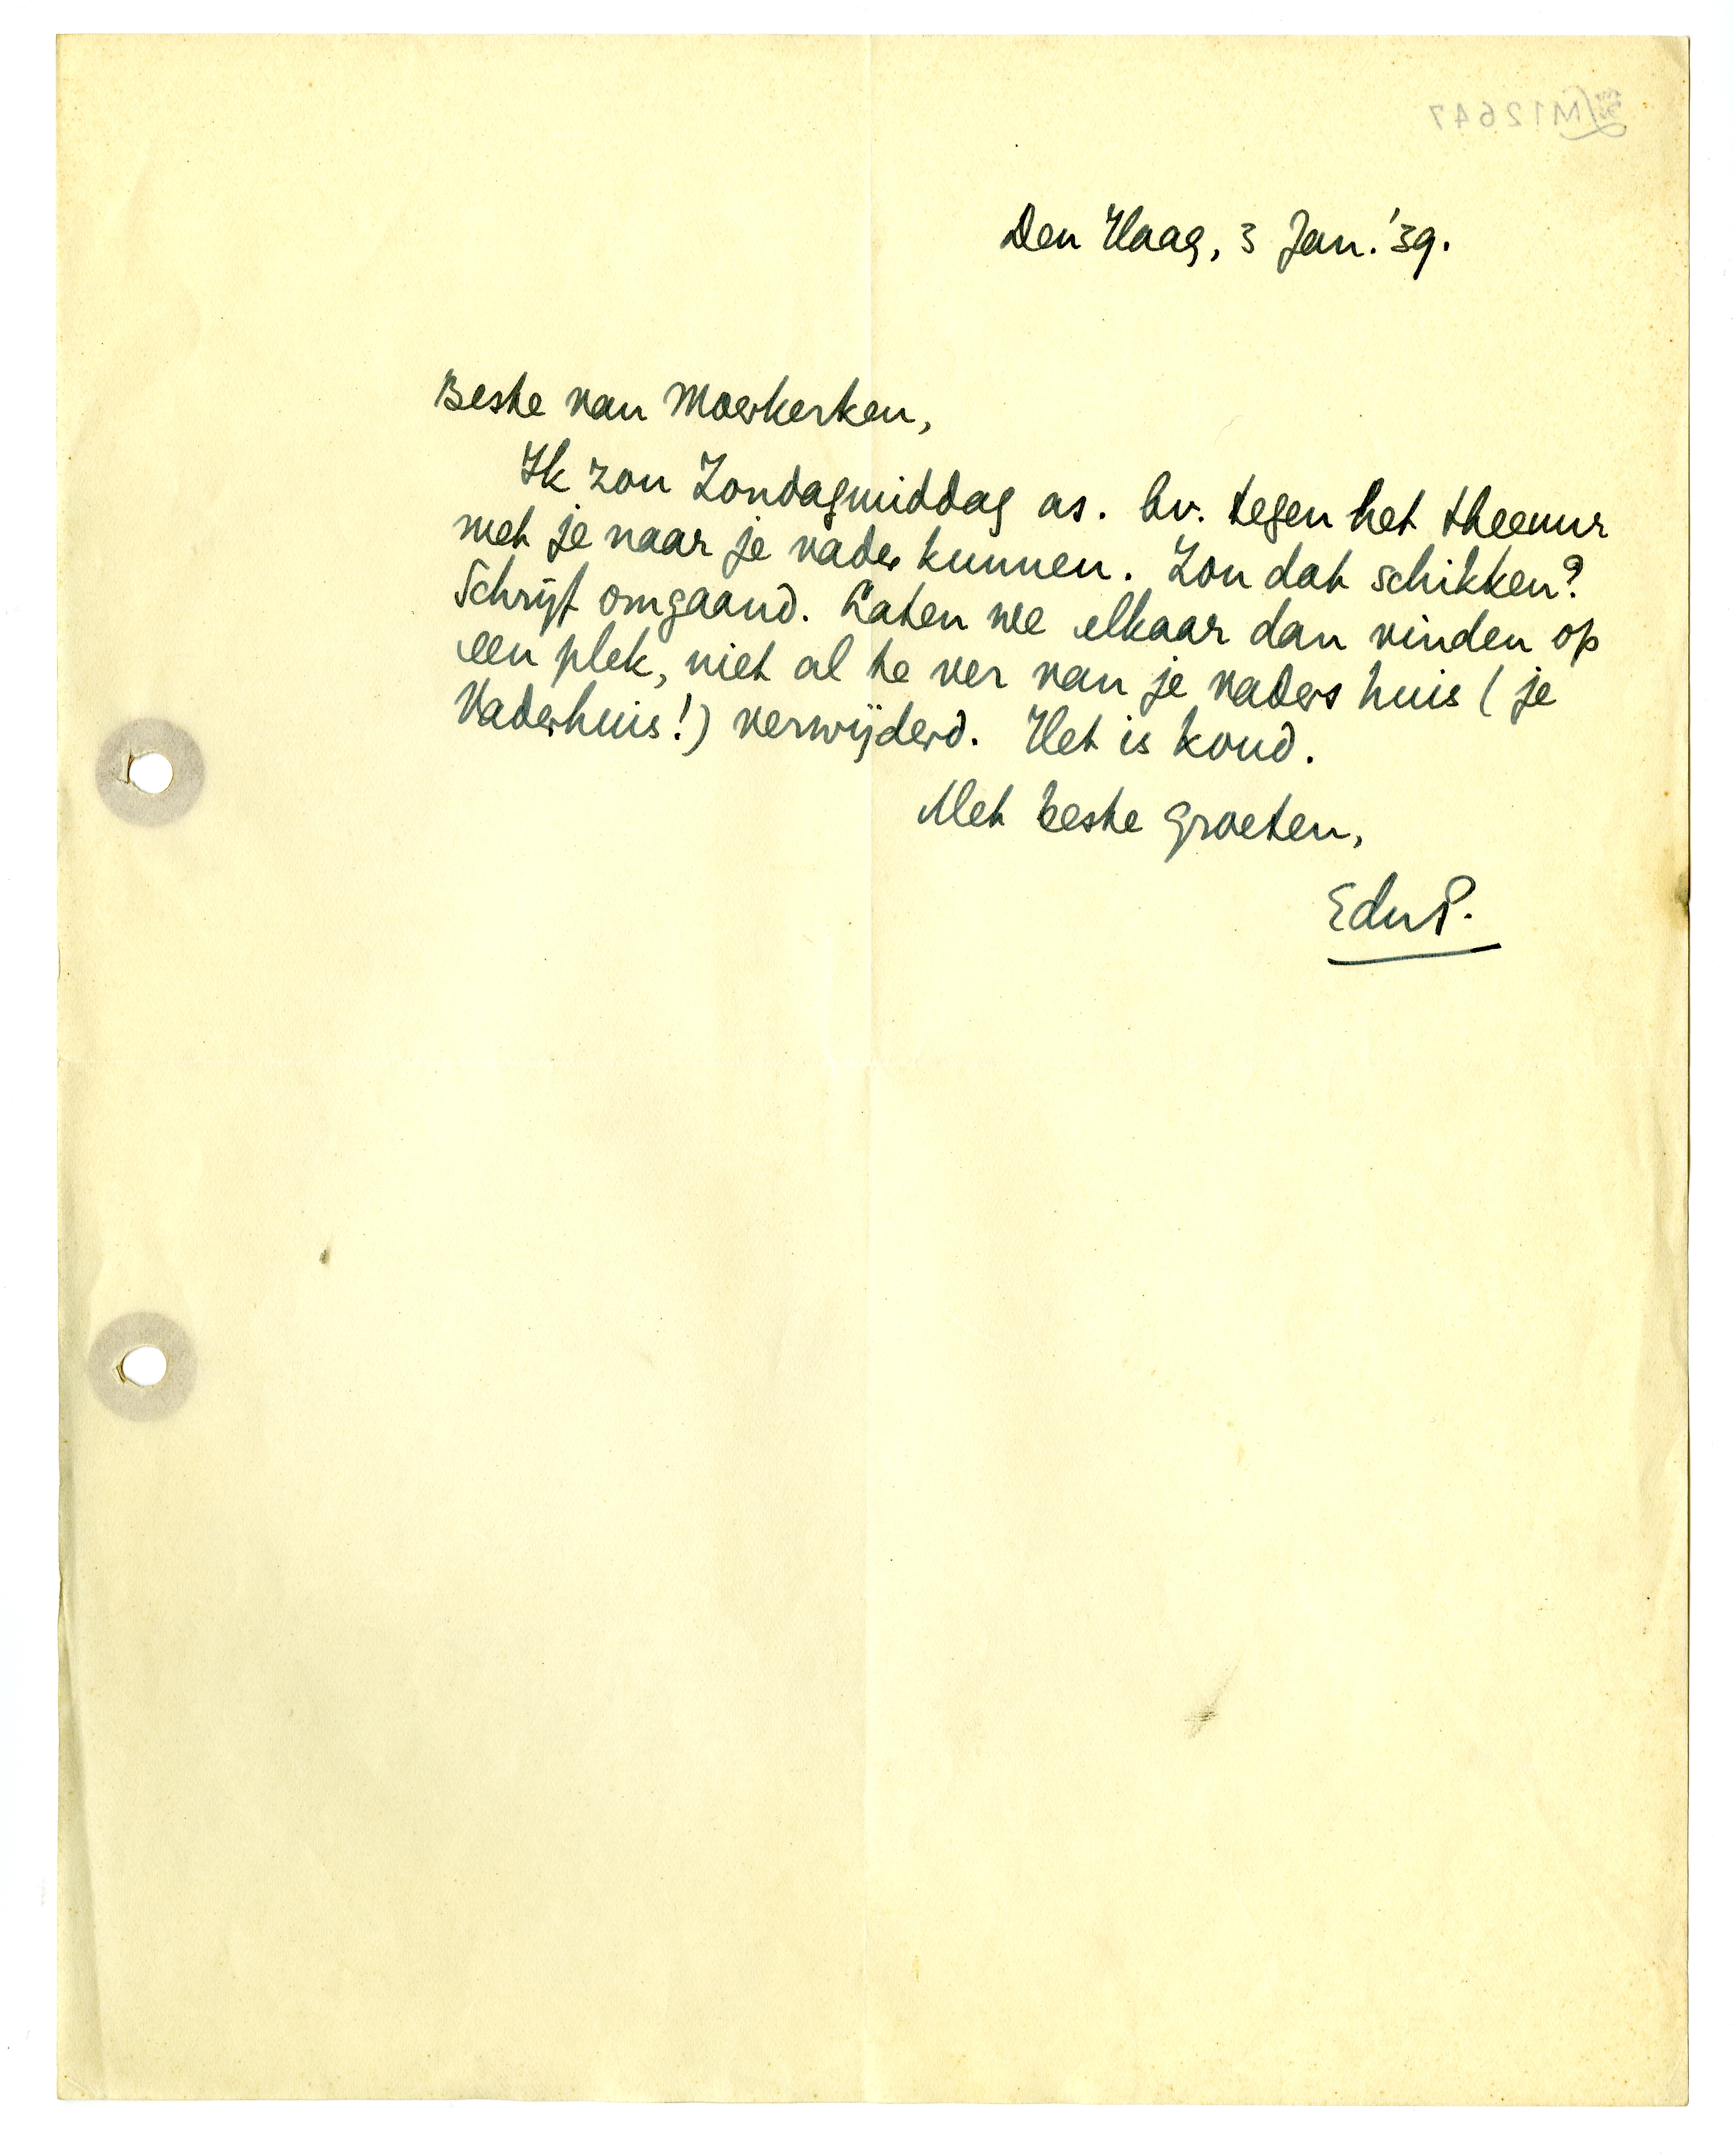 M12647
Den Haag, 3 Jan. '39.
Beste van Moerkerken,
Ik zou Zondagmiddag as. bv. tegen het theeuur
met je naar je vader kunnen. Zou dat schikken?
Schrijf omgaand. Laten we elkaar dan vinden op
een plek, niet al te ver van je vaders huis (je
Vaderhuis!) verwijderd. Het is koud.
Met beste groeten,
EduP.